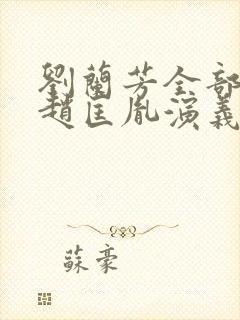 劉蘭芳全部
趙匡胤演義
蘇豪